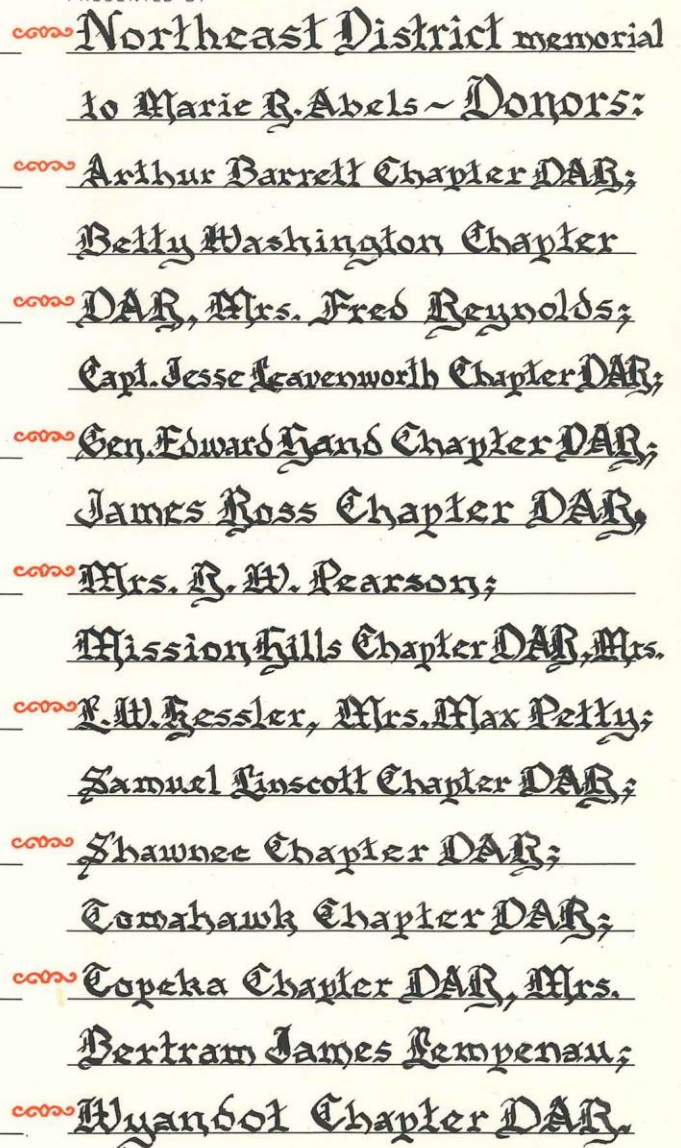 PRESENTED BY
Northeast District memorial
to Marie R. Abels ~ Donors:
Arthur Barrett Chapter DAR;
Betty Washington Chapter
DAR, Mrs. Fred Reynolds;
Capt. Jesse Leavenworth Chapter DAR;
Gen. Edward Hand Chapter DAR;
James Ross Chapter DAR,
Mrs. R. W. Pearson;
Mission Hills Chapter DAR, Mrs.
L. W. Hessler, Mrs. Max Petty;
Samuel Linscott Chapter DAR;
Shawnee Chapter DAR;
Tomahawk Chapter DAR;
Topeka Chapter DAR, Mrs.
Bertram James Lempenau;
Wyandot Chapter DAR.